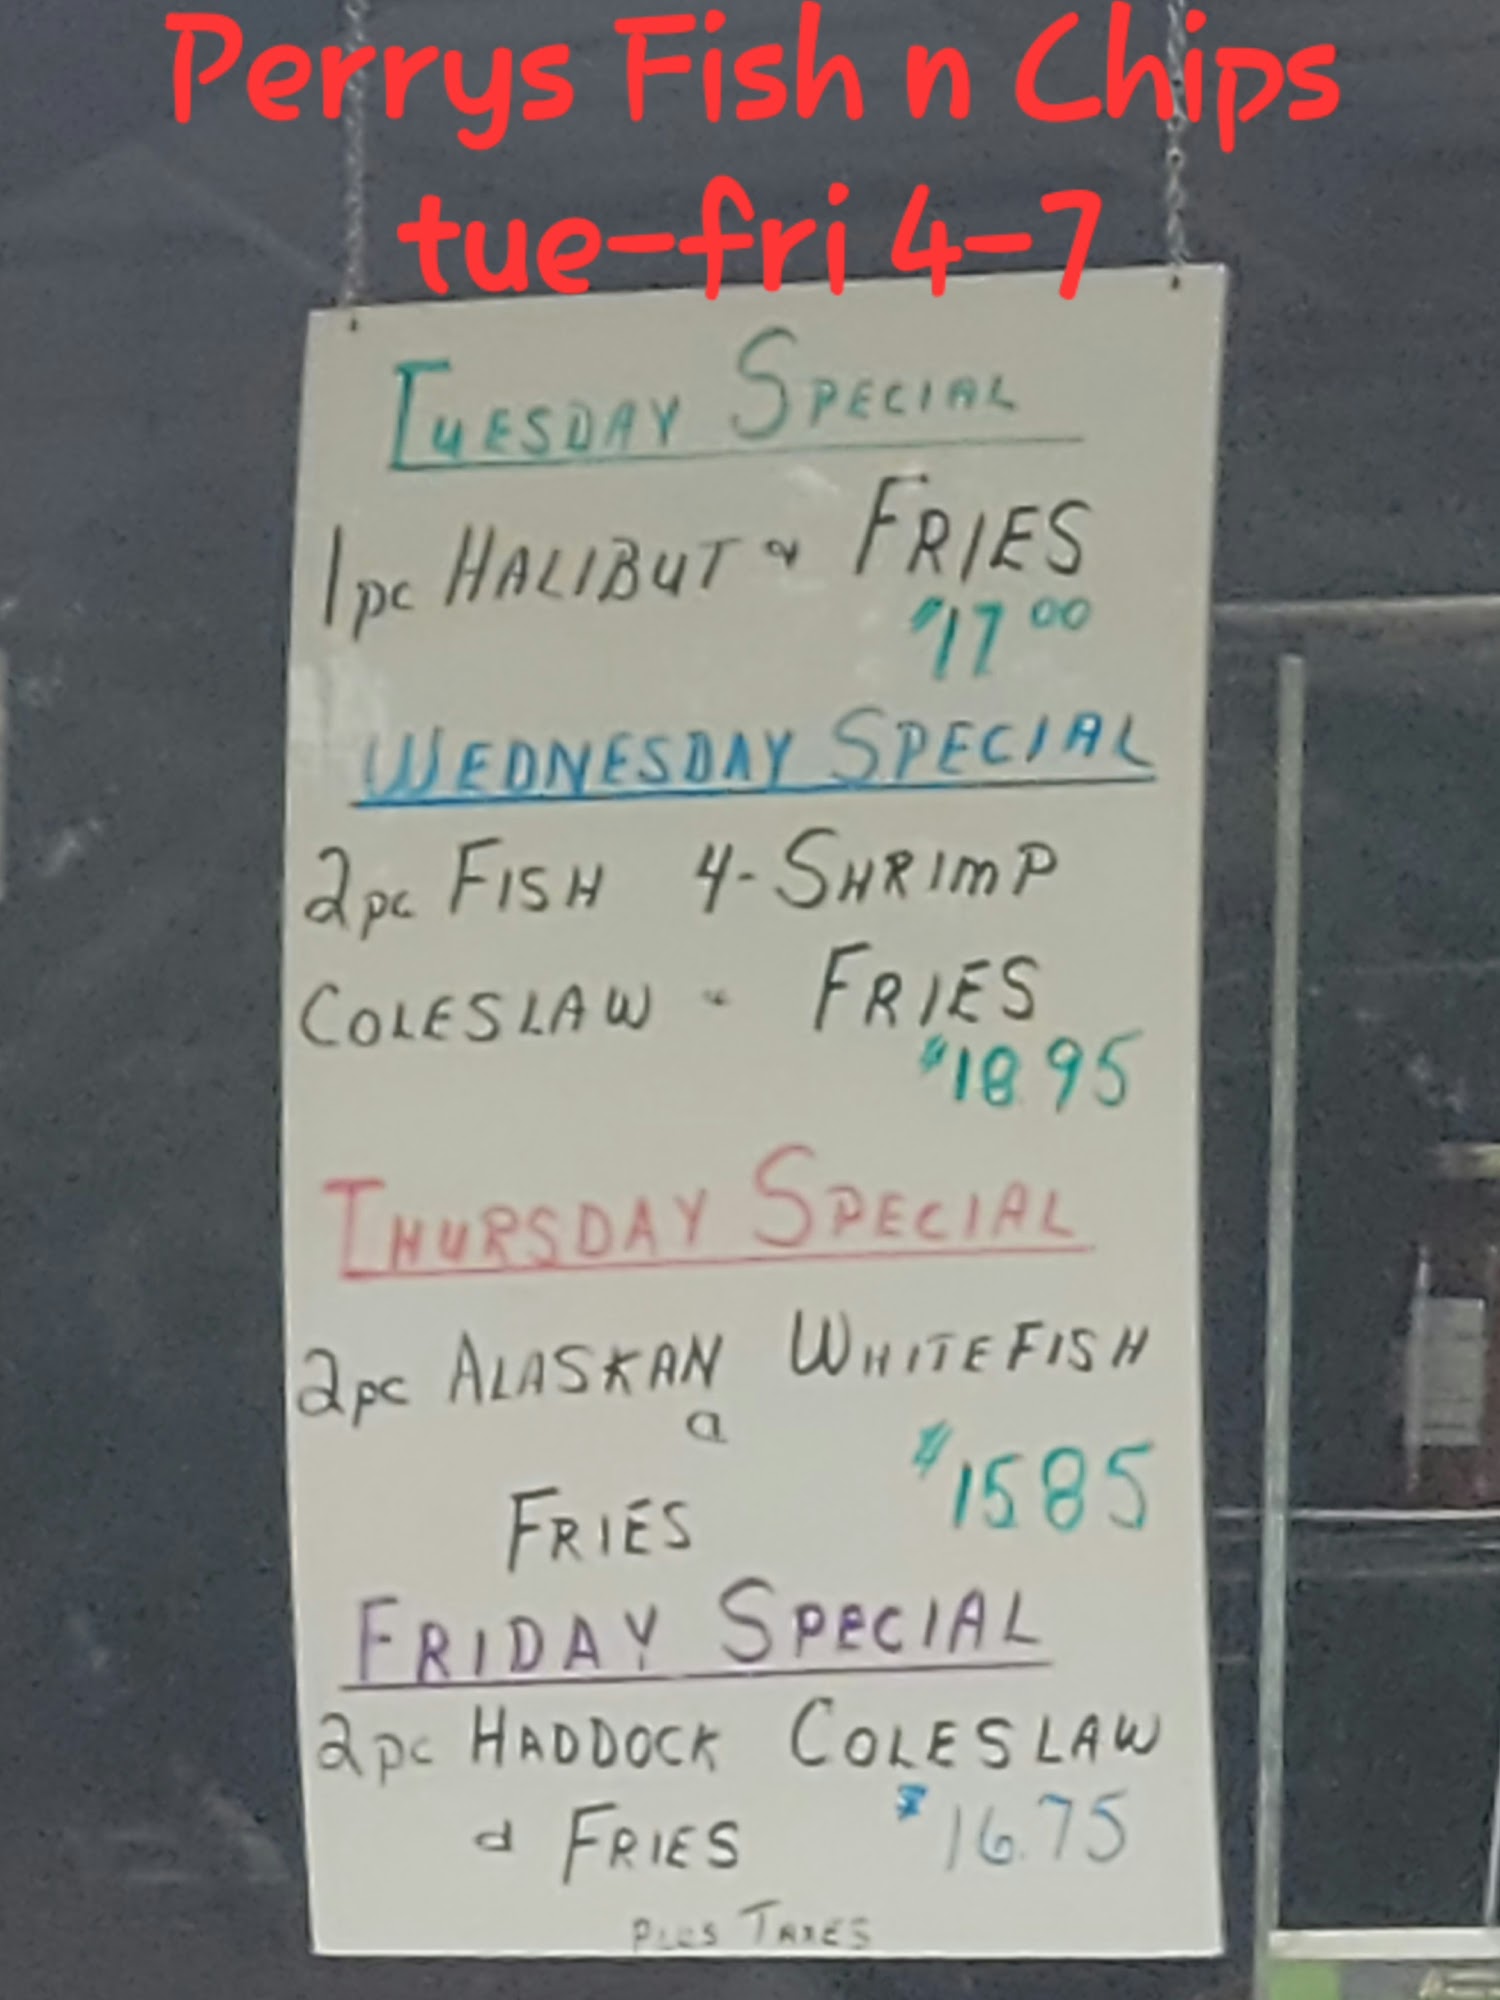 Perrys Fish n Chips
tue-fri 4-7
TUESDAY SPECIAL
1pc HALIBUT & FRIES
$17 00
WEDNESDAY SPECIAL
2pc FISH 4-SHRIMP
COLESLAW & FRIES
$18.95
THURSDAY SPECIAL
2pc ALASKAN WHITEFISH
&
$15 85
FRIES
FRIDAY SPECIAL
2pc HADDOCK COLESLAW
& FRIES $16.75
PLUS TAXES